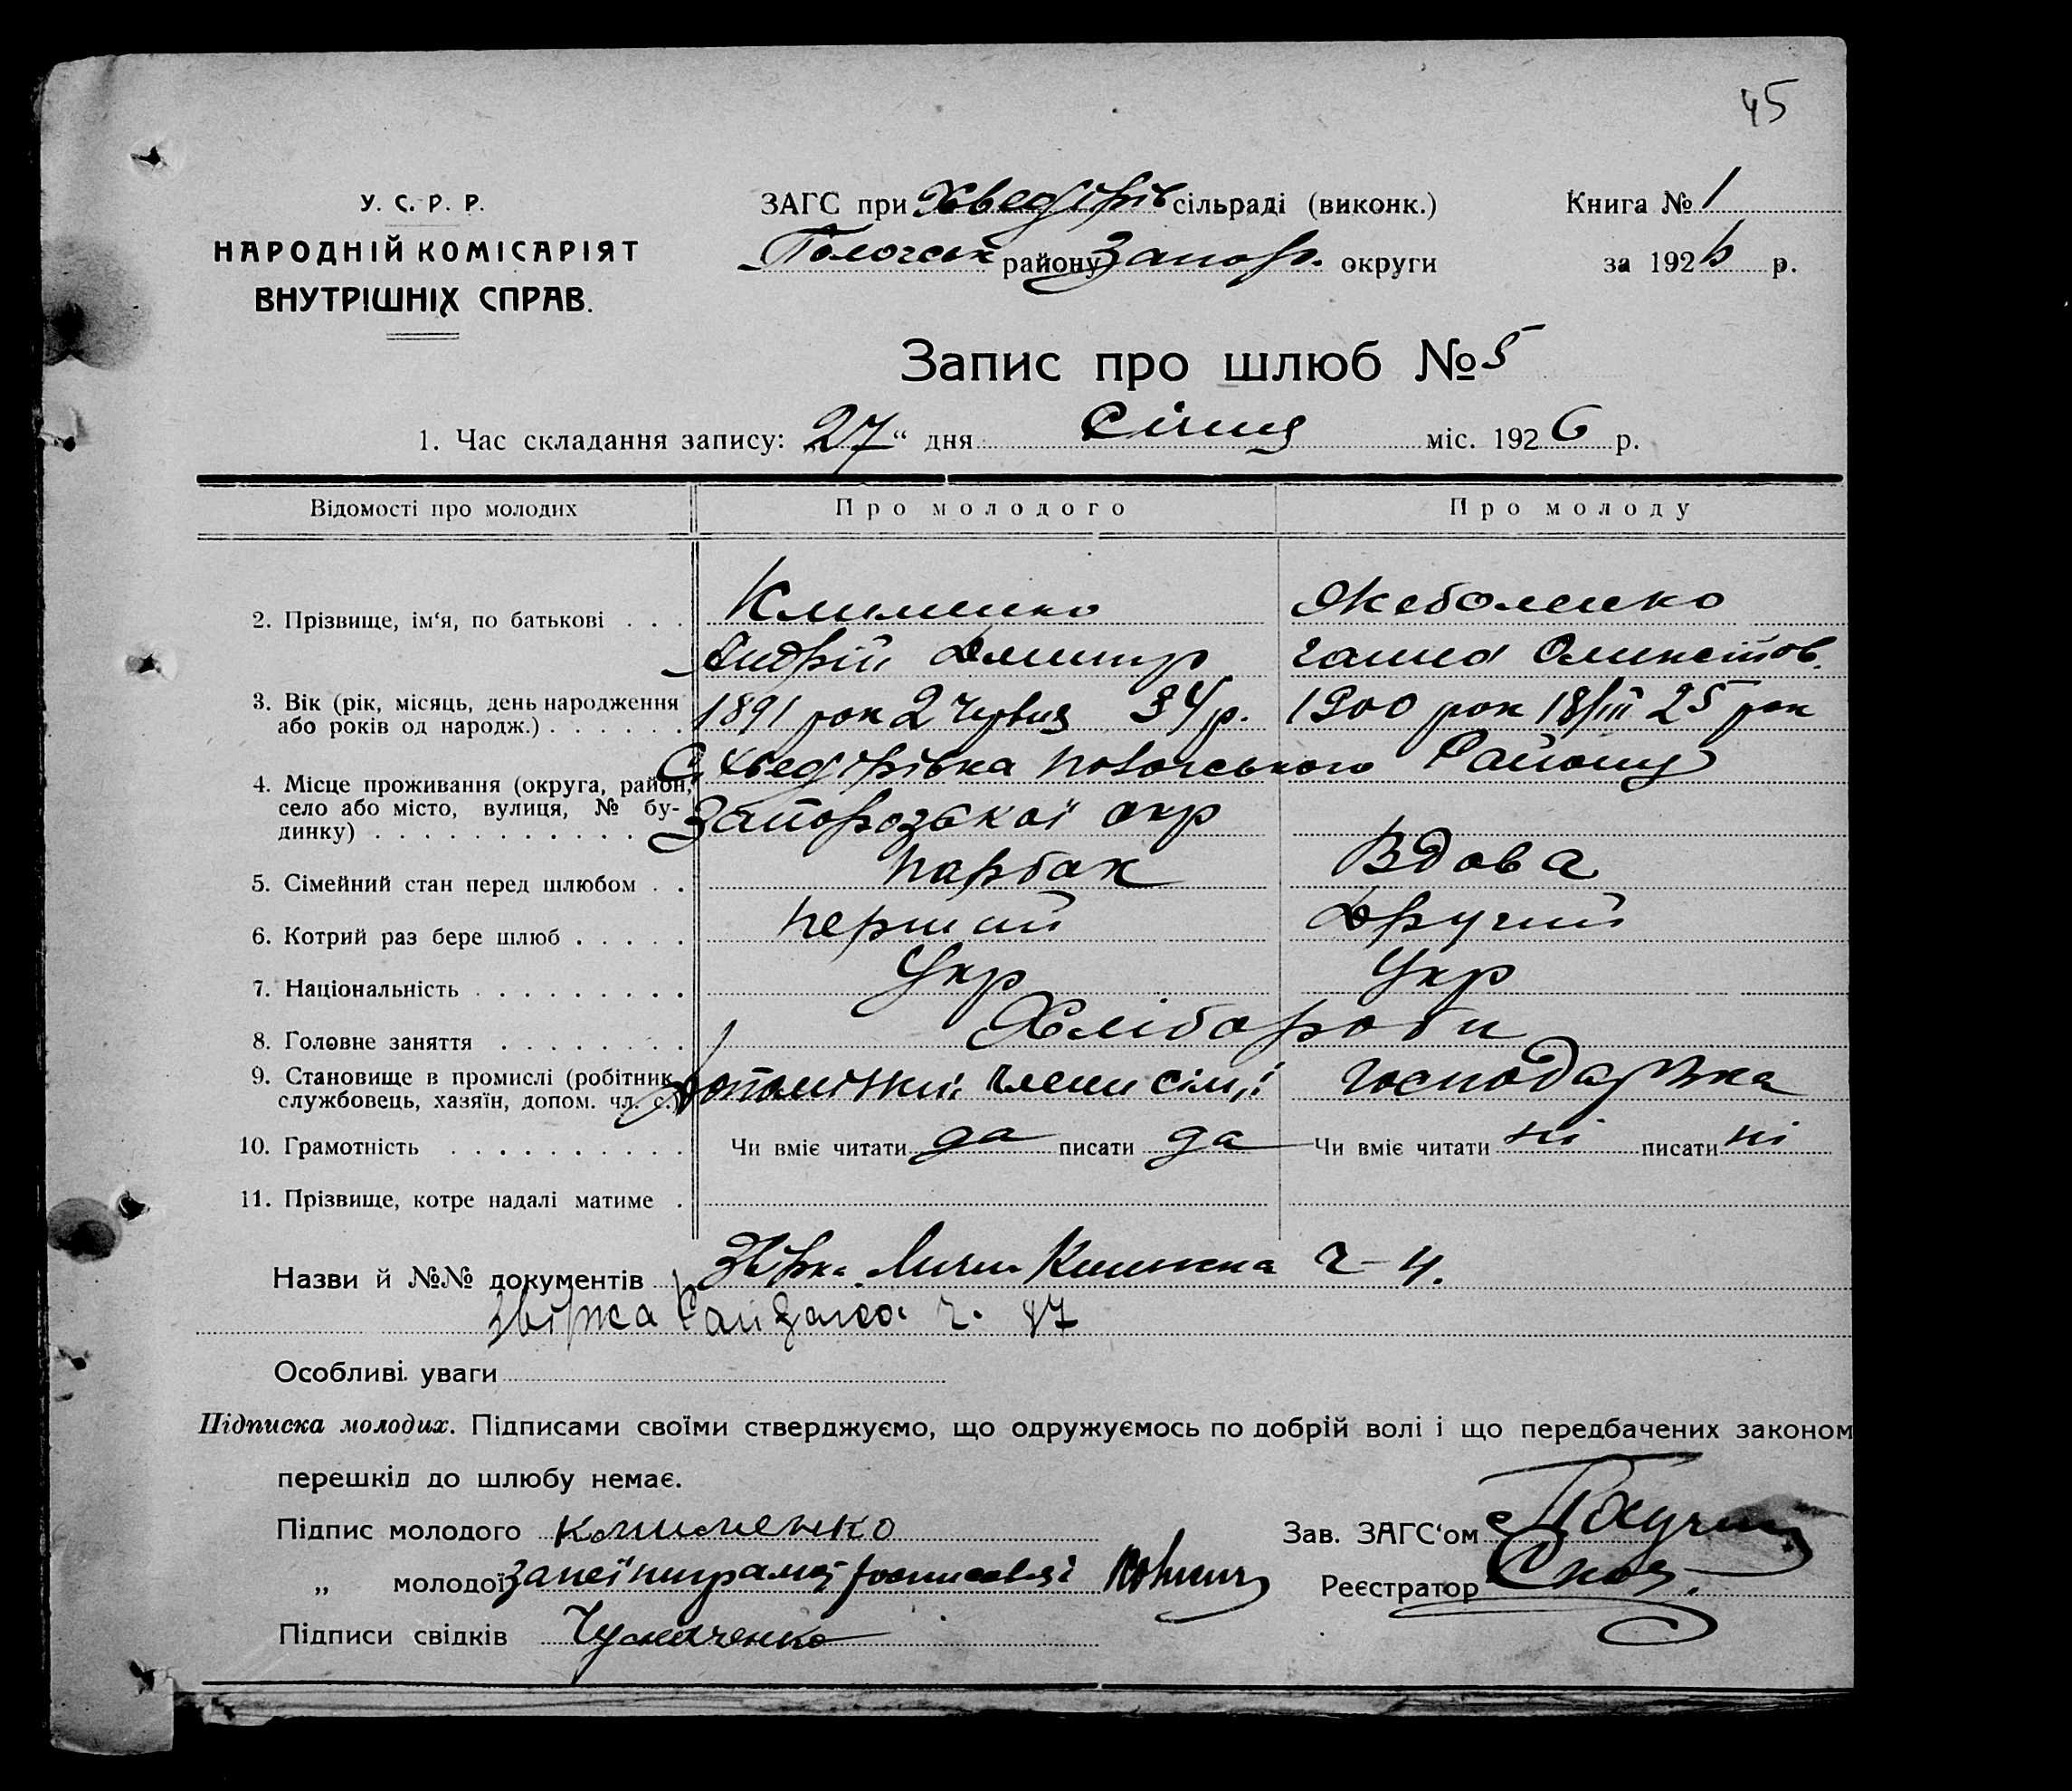 45
У. С. Р. Р.
НАРОДНІЙ КОМІСАРІЯТ
ВНУТРІШНІХ СПРАВ.
ЗАГС при Хведірів сільраді (виконк.)
Пологськ району Запор. округи
Книга № 1
за 1926 р.
Запис про шлюб № 5
1. Час складання запису: 27 " дня Січня міс. 1926 р.
Відомості про молодих
Про молодого
Про молоду
2. Прізвище, ім'я, по батькові . . .
Клименко
Андрій Дмитр
Жеболенко
Ганна
3. Вік (рік, місяць, день народження
або років од народж.) . . . . . .
1891 рок 2 червня 34 р.
1900 рок 18/III 25 рок
4. Місце проживання (округа, район,
село або місто, вулиця, № бу-
динку) . . . . . . . . . . .
С. Хведірівка Пологського Району
Запорозької окр
5. Сімейний стан перед шлюбом . .
парубок
Вдова
6. Котрий раз бере шлюб . . . . .
перший
Другий
7. Національність . . . . . . . . .
Укр
Укр
8. Головне заняття . . . . . . . .
Хлібороби
9. Становище в промислі (робітник,
службовець, хазяїн, допом. чл. с.)
член сімї
господарька
10. Грамотність . . . . . . . . . .
Чи вміє читати да писати да
Чи вміє читати ні писати ні
11. Прізвище, котре надалі матиме .
Назви й №№ документів Книжка ч - 4.
ч. 87
Особливі уваги
Підписка молодих. Підписами своїми стверджуємо, що одружуємось по добрій волі і що передбачених законом
перешкід до шлюбу немає.
Підпис молодого Клименко
Зав. ЗАГС'ом
„ молодої за неї
Реєстратор
Підписи свідків Чумаченко